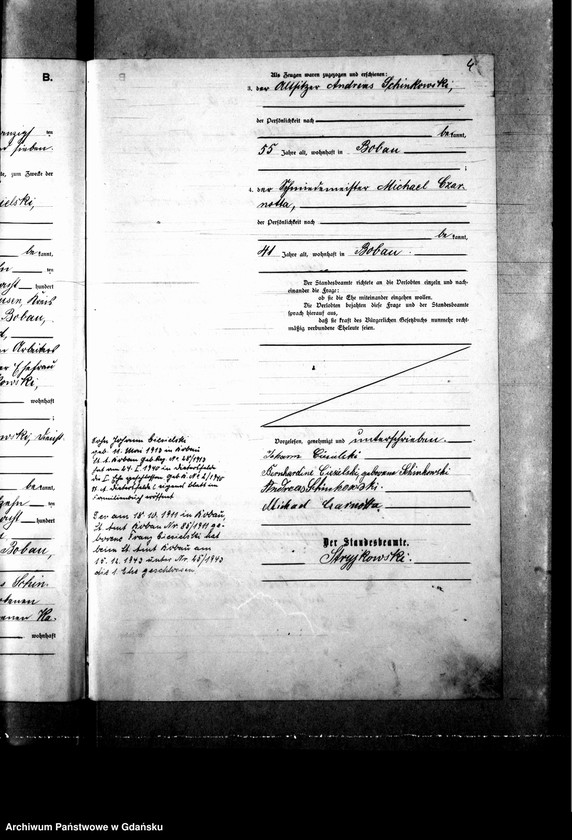 B.
4
Als Zeugen waren zugezogen und erschienen:
3. der Altsitzer Andreas Schinkowski,
der Persönlichkeit nach
be kannt,
55 Jahre alt, wohnhaft in Bobau
;
4. der Schmiedemeister Michael Czar-
notta,
der Persönlichkeit nach
be kannt,
41 Jahre alt, wohnhaft in Bobau.
Der Standesbeamte richtete an die Verlobten einzeln und nach-
einander die Frage:
ob sie die Ehe miteinander eingehen wollen.
Die Verlobten bejahten diese Frage und der Standesbeamte
sprach hierauf aus,
daß sie kraft des Bürgerlichen Gesetzbuchs nunmehr recht-
mäßig verbundene Eheleute seien.
Vorgelesen, genehmigt und unterschrieben.
Johann Ciesielski
Bernhardine Ciesielski, geborene Schinkowski
Andreas Schinkowski.
Michael Czarnotta.
Der Standesbeamte.
Stryjkowski.
Sohn Johann Ciesielski
geb. 11. Mai 1913 in Bobau
hat am 24. I. 1940 in
Familienbuch eröffnet
Der am 18. 10. 1911 in Bobau,
St. Amt Bobau Nr. 85/1911 ge-
borene Franz Ciesielski hat
beim St. Amt Bobau am
15. 11. 1943 unter Nr. 45/1943
die 1. Ehe geschlossen
te, zum Zwecke der
ielski,
be kannt,
hundert
Kreis
Bobau,
Arbeiters
Ehefrau
wohnhaft
;
be kannt,
zehn
hundert
Bobau,
Schin-
wohnhaft
Archiwum Państwowe w Gdańsku